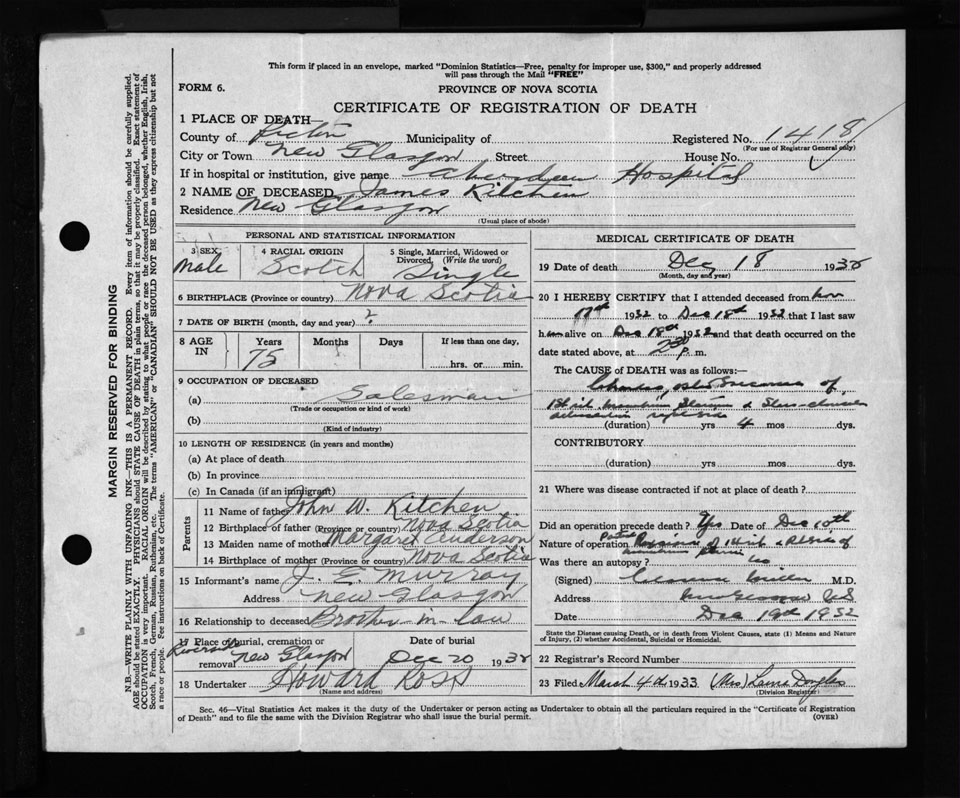 This form if placed in an envelope, marked "Dominion Statistics—Free, penalty for improper use, $300," and properly addressed
will pass through the Mail "FREE"
FORM 6.
PROVINCE OF NOVA SCOTIA
CERTIFICATE OF REGISTRATION OF DEATH
1 PLACE OF DEATH—
County of Pictou Municipality of Registered No. 1418
(For use of Registrar General only)
City or Town New Glasgow Street House No.
If in hospital or institution, give name Aberdeen Hospital
2 NAME OF DECEASED James Kitchen
Residence New Glasgow
(Usual place of abode)
PERSONAL AND STATISTICAL INFORMATION
3 SEX Male
4 RACIAL ORIGIN Scotch
5 Single, Married, Widowed or Divorced. (Write the word) Single
6 BIRTHPLACE (Province or country) Nova Scotia
7 DATE OF BIRTH (month, day and year) ?
8 AGE IN Years 75 Months Days If less than one day, hrs. or min.
9 OCCUPATION OF DECEASED
(a) Salesman
(Trade or occupation or kind of work)
(b)
(Kind of industry)
10 LENGTH OF RESIDENCE (in years and months)
(a) At place of death
(b) In province
(c) In Canada (if an immigrant)
Parents
11 Name of father John W. Kitchen
12 Birthplace of father (Province or country) Nova Scotia
13 Maiden name of mother Margaret Anderson
14 Birthplace of mother (Province or country) Nova Scotia
15 Informant's name J. E. Murray
Address New Glasgow
16 Relationship to deceased Brother in law
17 Place of burial, cremation or removal Riverside New Glasgow
Date of burial Dec 20 1932
18 Undertaker Howard Ross
(Name and address)
MEDICAL CERTIFICATE OF DEATH
19 Date of death Dec 18 1932
(Month, day and year)
20 I HEREBY CERTIFY that I attended deceased from
1932 to Dec 18th 1932 that I last saw
him alive on Dec 18th 1932 and that death occurred on the
date stated above, at p. m.
The CAUSE of DEATH was as follows:—
of
(duration) yrs 4 mos dys.
CONTRIBUTORY
(duration) yrs mos dys.
21 Where was disease contracted if not at place of death?
Did an operation precede death? Yes Date of Dec 10th
Nature of operation
Was there an autopsy? no
(Signed) Clarence Miller M.D.
Address New Glasgow NS
Date Dec 19th 1932
State the Disease causing Death, or in death from Violent Causes, state (1) Means and Nature
of Injury, (2) whether Accidental, Suicidal or Homicidal.
22 Registrar's Record Number
23 Filed March 4th 1933 (Mrs)
(Division Registrar)
Sec. 46—Vital Statistics Act makes it the duty of the Undertaker or person acting as Undertaker to obtain all the particulars required in the "Certificate of Registration
of Death" and to file the same with the Division Registrar who shall issue the burial permit.
(OVER)
MARGIN RESERVED FOR BINDING
N.B.—WRITE PLAINLY WITH UNFADING INK—THIS IS A PERMANENT RECORD. Every item of information should be carefully supplied.
AGE should be stated EXACTLY. PHYSICIANS should STATE CAUSE OF DEATH in plain terms, so that it may be properly classified. Exact statement of
OCCUPATION is very important. RACIAL ORIGIN will be described by stating to what people or race the deceased person belonged, whether English, Irish,
Scotch, French, German, Russian, Ruthenian, etc. The terms "AMERICAN" or "CANADIAN" SHOULD NOT BE USED as they express citizenship but not
a race or people. See instructions on back of Certificate.